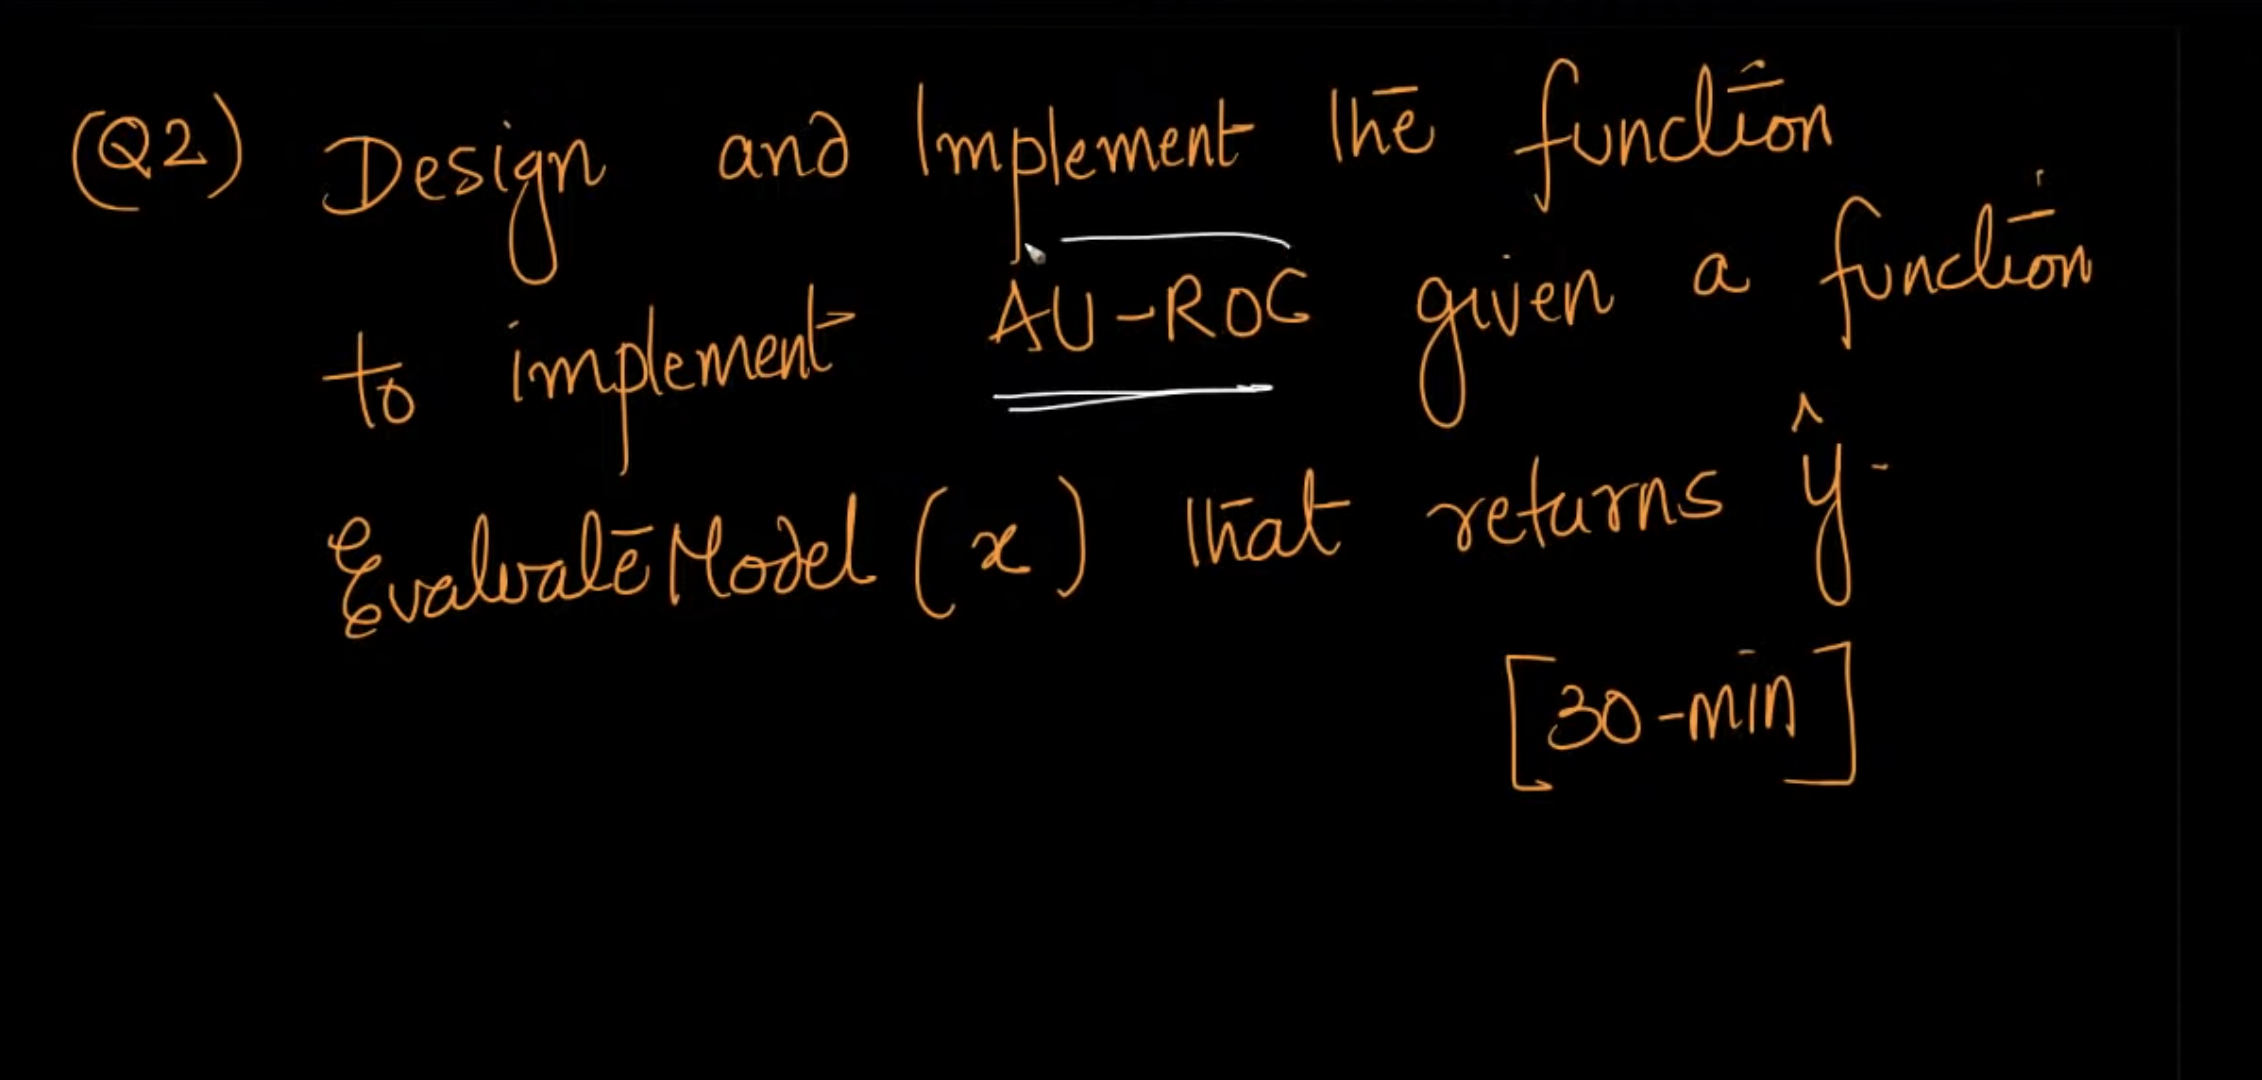 (Q2) Design and Implement the function
to implement AU-ROC given a function
EvaluateModel (x) that returns ŷ
[30-min]